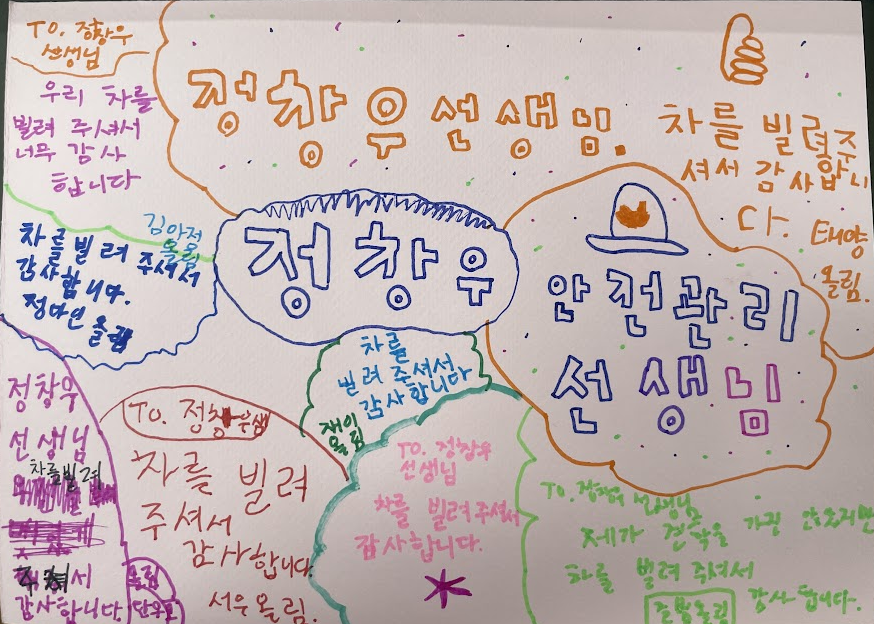 TO. 정창우
선생님
우리 차를
빌려 주셔서
너무 감사
합니다
정창우선생님.
차를 빌려주
셔서 감사합니
다.
태양
올림.
김아정
올림
차를 빌려 주셔서
감사합니다.
정다인 올림
정창우
안전관리
선생님
차를
빌려 주셔서
감사합니다
재이
올림
정창우
선생님
차를빌려
주셔서
감사합니다.
올림
TO. 정창우쌤
차를 빌려
주셔서
감사합니다.
서우올림.
TO. 정창우
선생님
차를 빌려주셔서
감사합니다.
TO. 선생님
제가 견학을
차를 빌려 주셔서
감사합니다.
올림